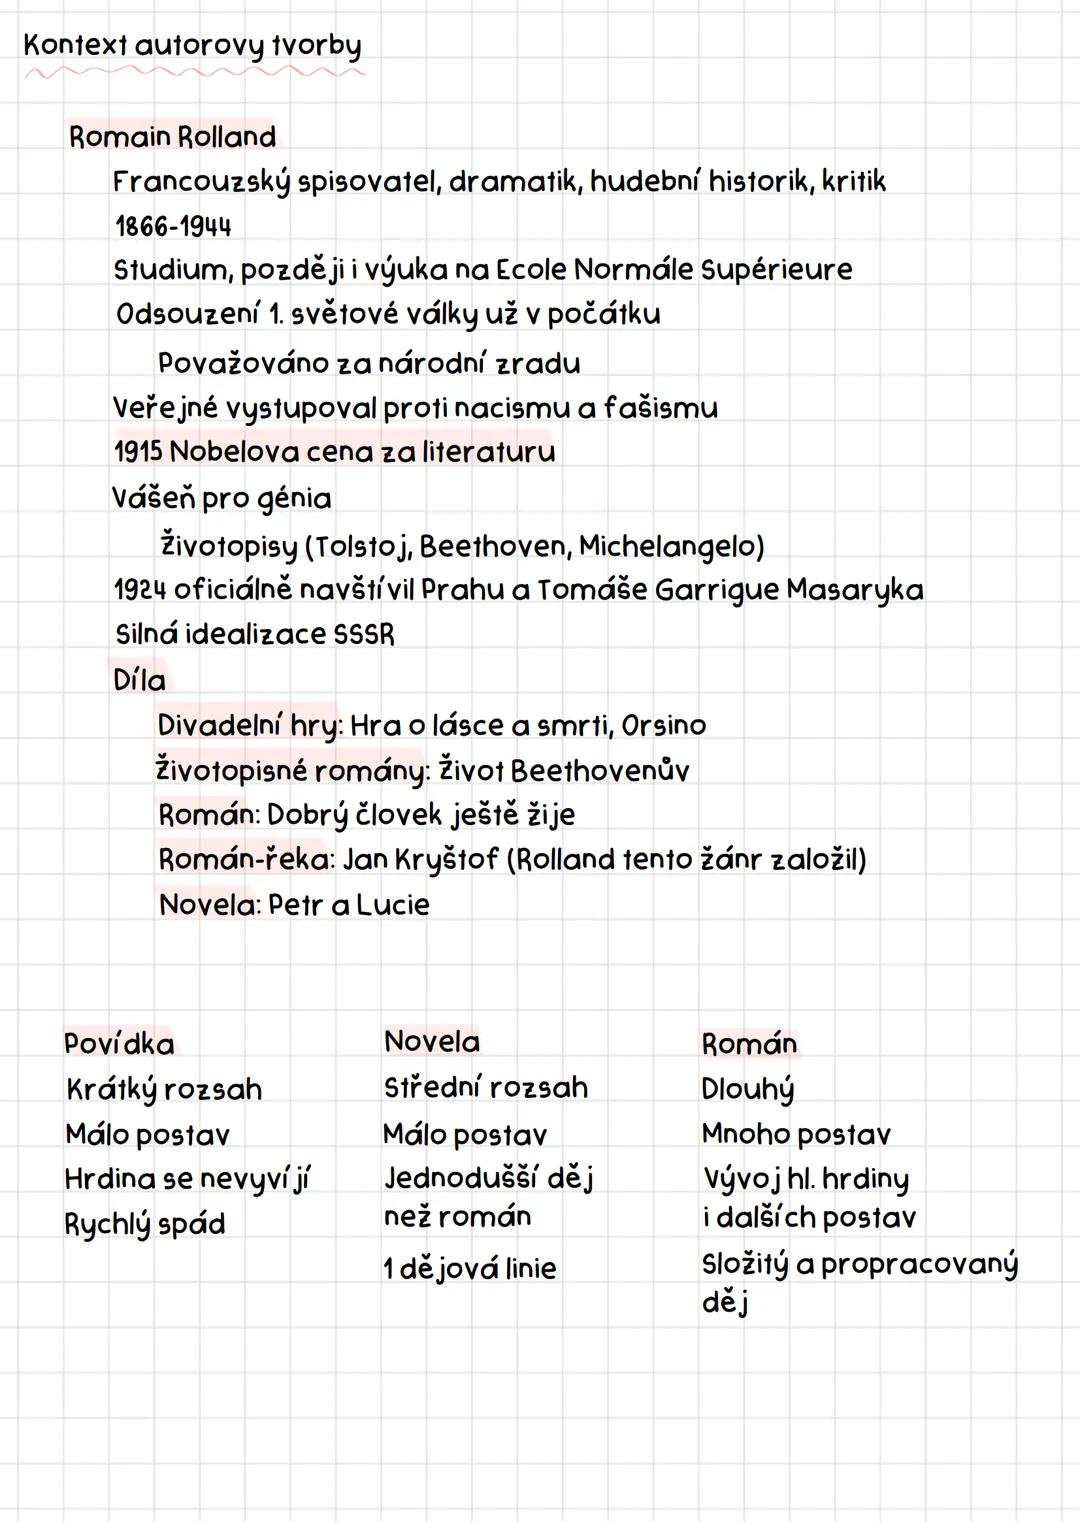 Kontext autorovy tvorby
Romain Rolland
Francouzský spisovatel, dramatik, hudební historik, kritik
1866-1944
Studium, později i výuka na Ecole Normále Supérieure
Odsouzení 1. světové války už v počátku
Považováno za národní zradu
Veřejné vystupoval proti nacismu a fašismu
1915 Nobelova cena za literaturu
Vášeň pro génia
Životopisy (Tolstoj, Beethoven, Michelangelo)
1924 oficiálně navštívil Prahu a Tomáše Garrigue Masaryka
Silná idealizace SSSR
Díla
Divadelní hry: Hra o lásce a smrti, Orsino
Životopisné romány: Život Beethovenův
Román: Dobrý človek ještě žije
Román-řeka: Jan Kryštof (Rolland tento žánr založil)
Novela: Petr a Lucie
Povídka
Krátký rozsah
Málo postav
Hrdina se nevyvíjí
Rychlý spád
Novela
Střední rozsah
Málo postav
Jednodušší děj
než román
1 dějová linie
Román
Dlouhý
Mnoho postav
Vývoj hl. hrdiny
i dalších postav
Složitý a propracovaný
děj